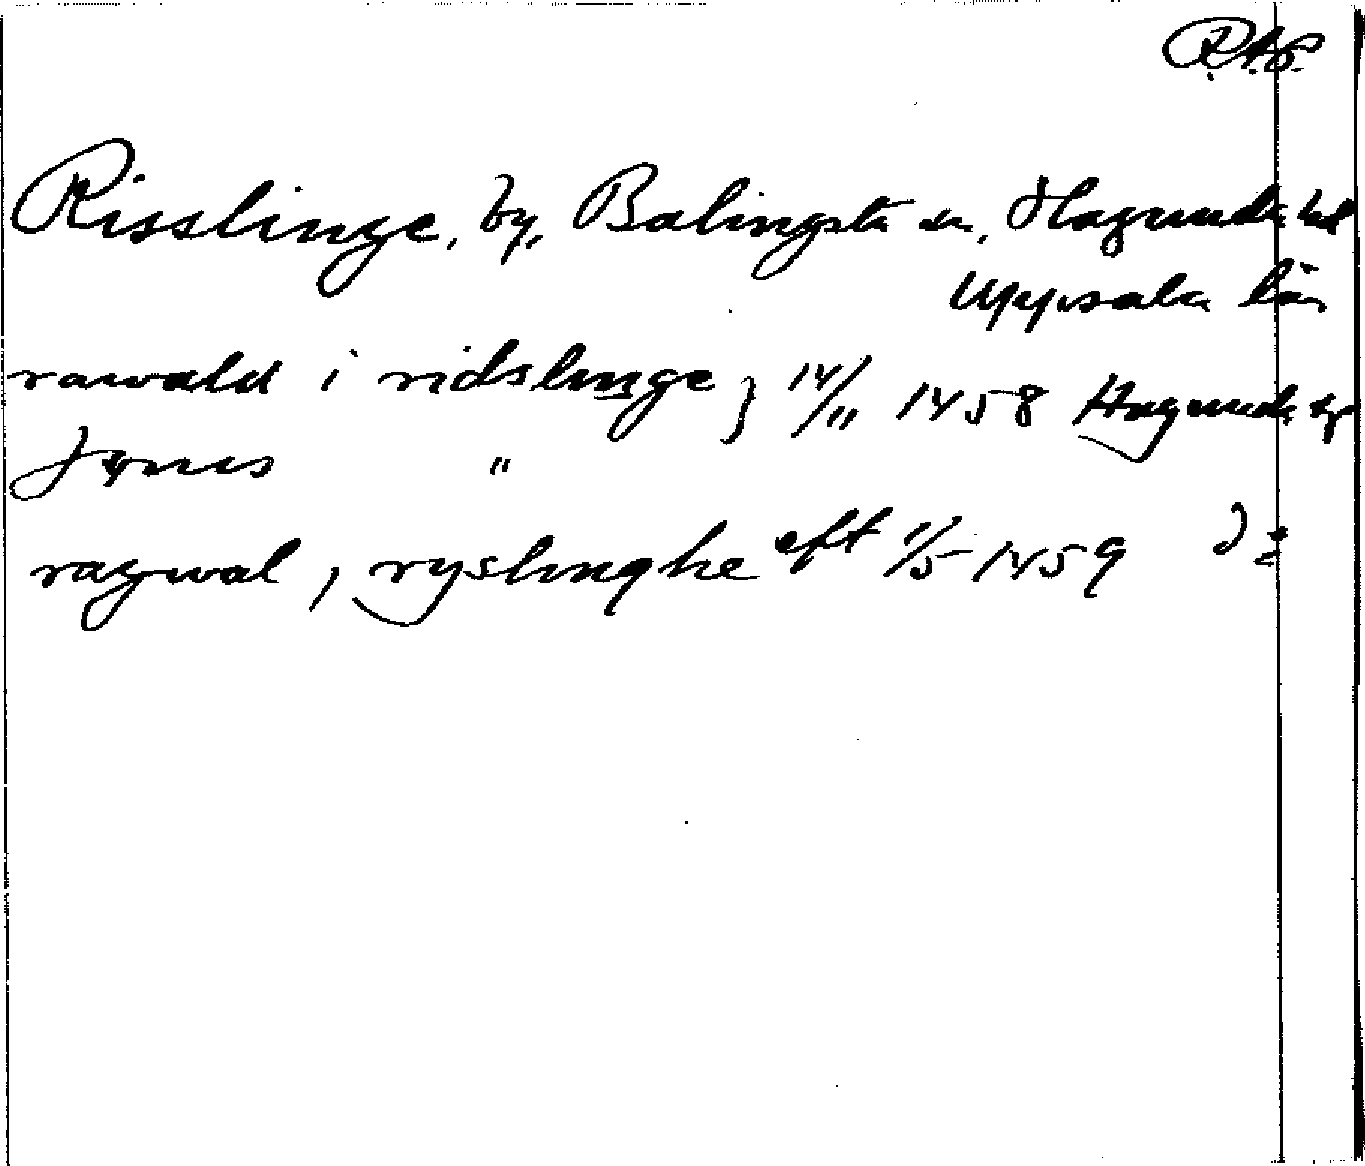 R.A.P.
Risslinge, by, Balingsta sn, Hagunda hd
Uppsala län
rawald i ridslinge } 14/11 1458 Hagunda
Jönes "
ragwal, ryslinghe eft 1/5 1459 d:o